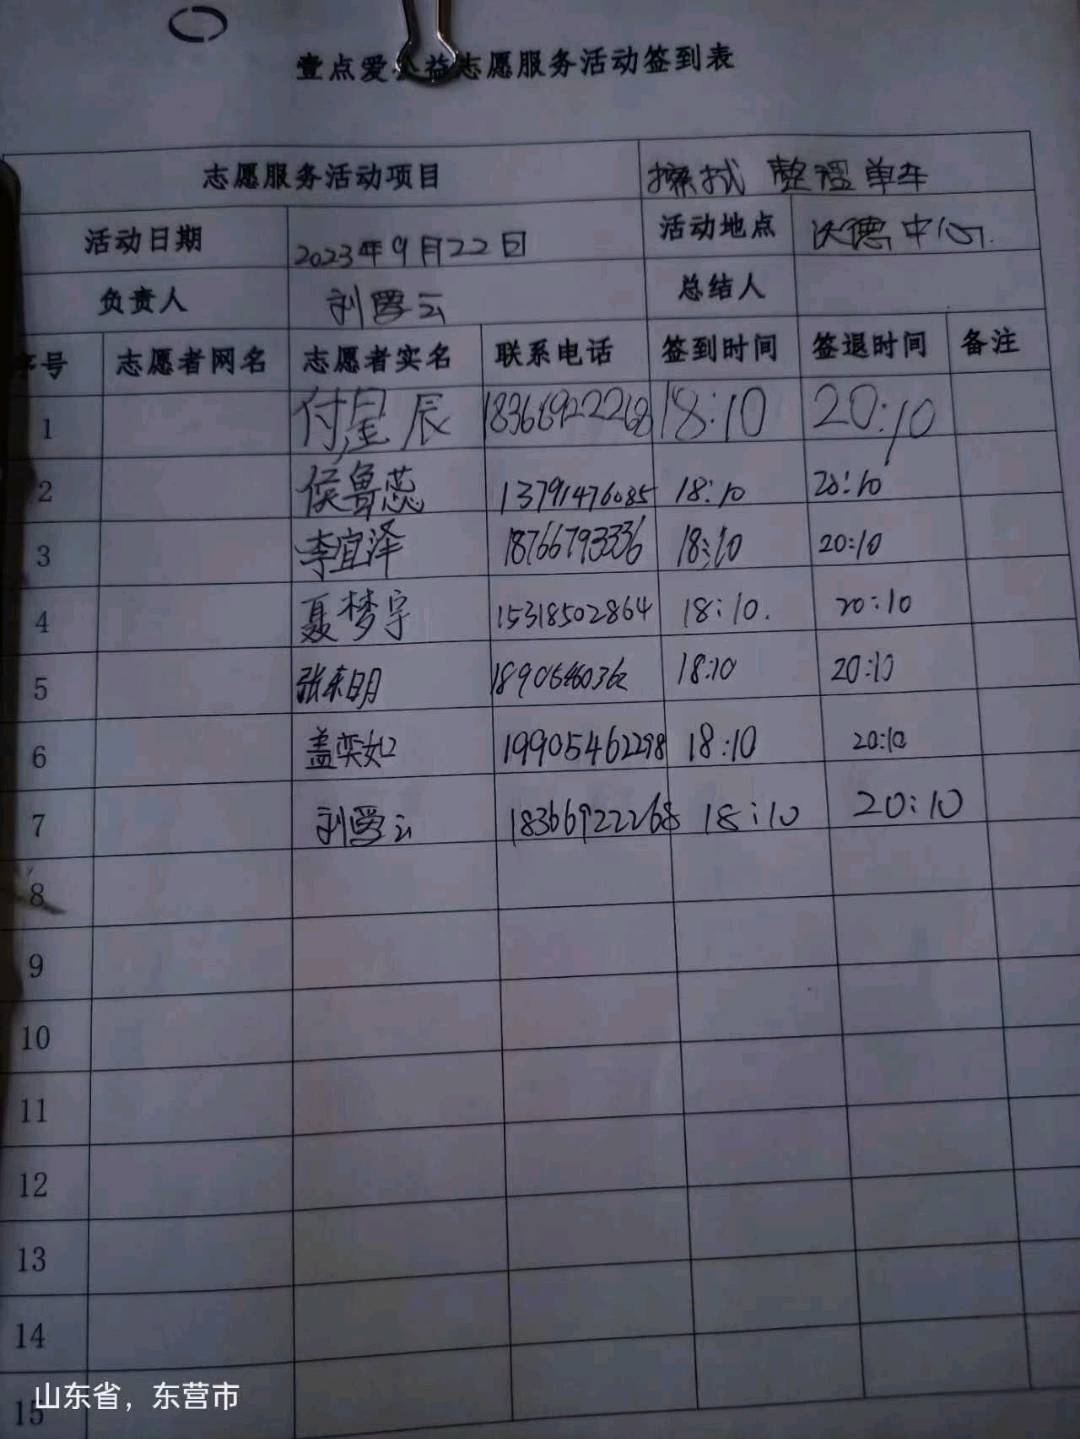 壹点爱公益志愿服务活动签到表
志愿服务活动项目 擦拭 整理单车
活动日期 2023年9月22日 活动地点 沃德中心.
负责人 刘爱云 总结人
序号 志愿者网名 志愿者实名 联系电话 签到时间 签退时间 备注
1 付星辰 18366922268 18:10 20:10
2 侯鲁蕊 13791476085 18:10 20:10
3 李宜泽 18766793336 18:10 20:10
4 聂梦宇 15318502864 18:10. 20:10
5 18:10 20:10
6 盖奕如 19905462298 18:10 20:10
7 刘爱云 18366922268 18:10 20:10
8
9
10
11
12
13
14
15
山东省，东营市